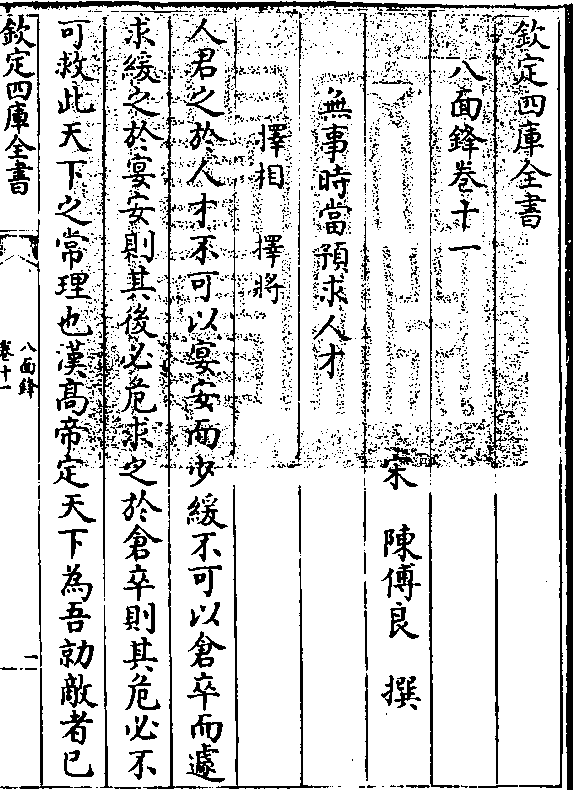 欽定四庫全書
八面鋒卷十一
宋 陳傅良 撰
無事時當預求人才
擇相 擇將
人君之於人才不可以宴安而少緩不可以倉卒而遽
求緩之於宴安則其後必危求之於倉卒則其危必不
可救此天下之常理也漢髙帝定天下為吾勍敵者已
欽定四庫全書
八面鋒
卷十一
一